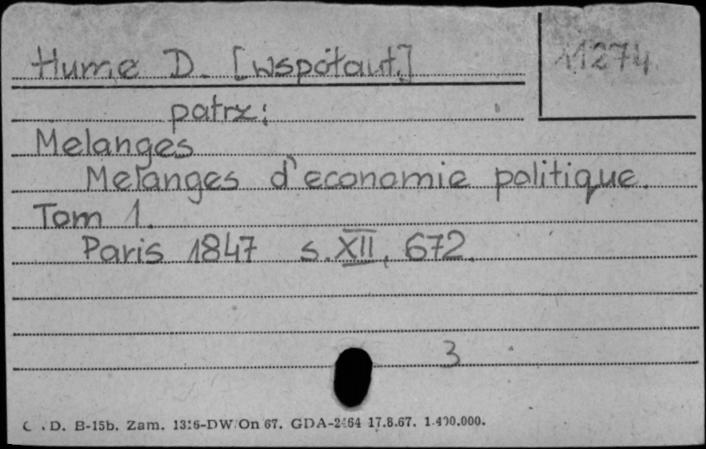 Hume D. [współaut.]
11274
patrz:
Melanges
Melanges d'economie politique.
Tom 1.
Paris 1847 s. XII, 672.
3
D. B-15b. Zam. 1316-DW/On 67. GDA-2464 17.8.67. 1.400.000.